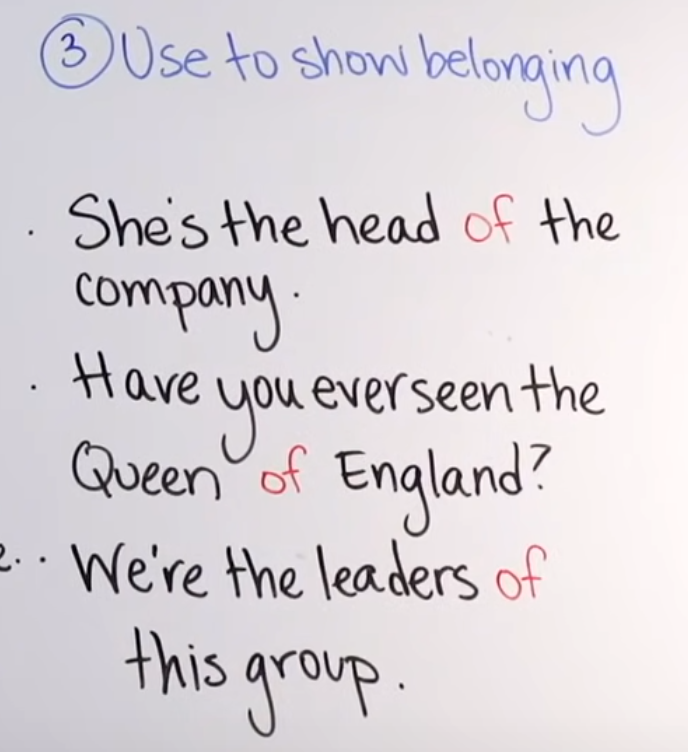 ③ Use to show belonging
· She's the head of the
company.
· Have you ever seen the
Queen of England?
· We're the leaders of
this group.